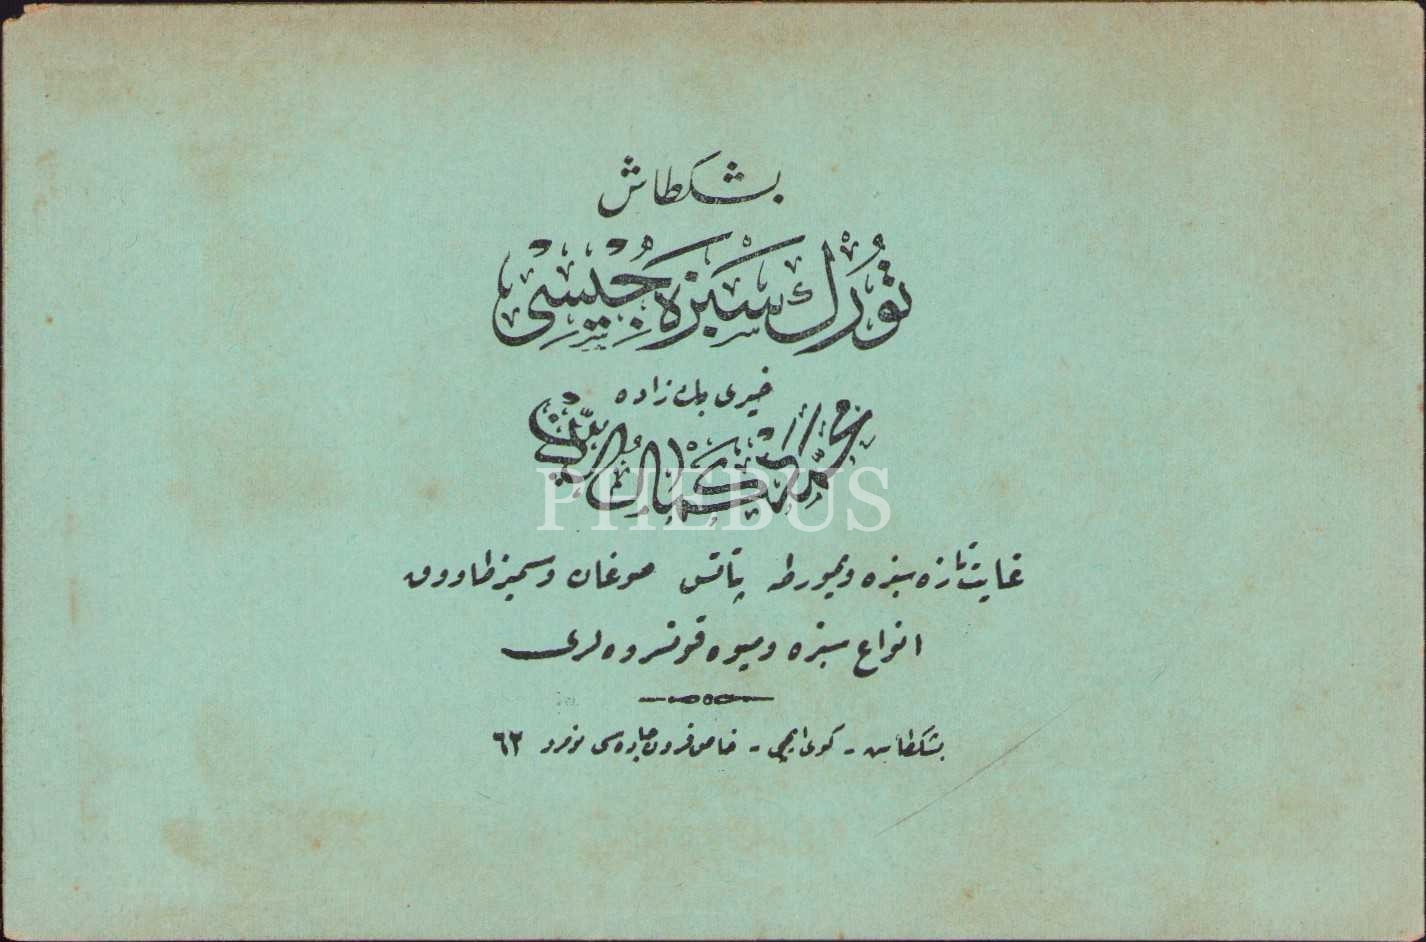 بشكطاش
تُورك سَبزه جیسی
خیری بك زاده
محمّد كمال الدّین
غایت تازه سبزه ویمورطه پتاتس صوغان وسمیز طاووق
انواع سبزه ومیوه قونسروه لری
بشكطاش - كوی ایچی - خاص فرون جاده سی نومرو ٦٢
PHEBUS